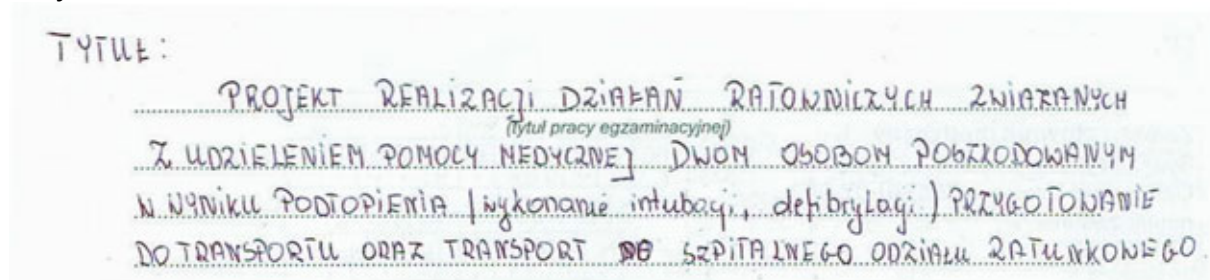 TYTUŁ:
PROJEKT REALIZACJI DZIAŁAŃ RATOWNICZYCH ZWIAZANYCH
(Tytuł pracy egzaminacyjnej)
Z UDZIELENIEM POMOCY MEDYCZNEJ DWOM OSOBOM POSZKODOWANYM
W WYNIKU PODTOPIENIA (wykonanie intubacji, defibrylacji) PRZYGOTOWANIE
DO TRANSPORTU ORAZ TRANSPORT DO SZPITALNEGO ODZIAŁU RATUNKOWEGO